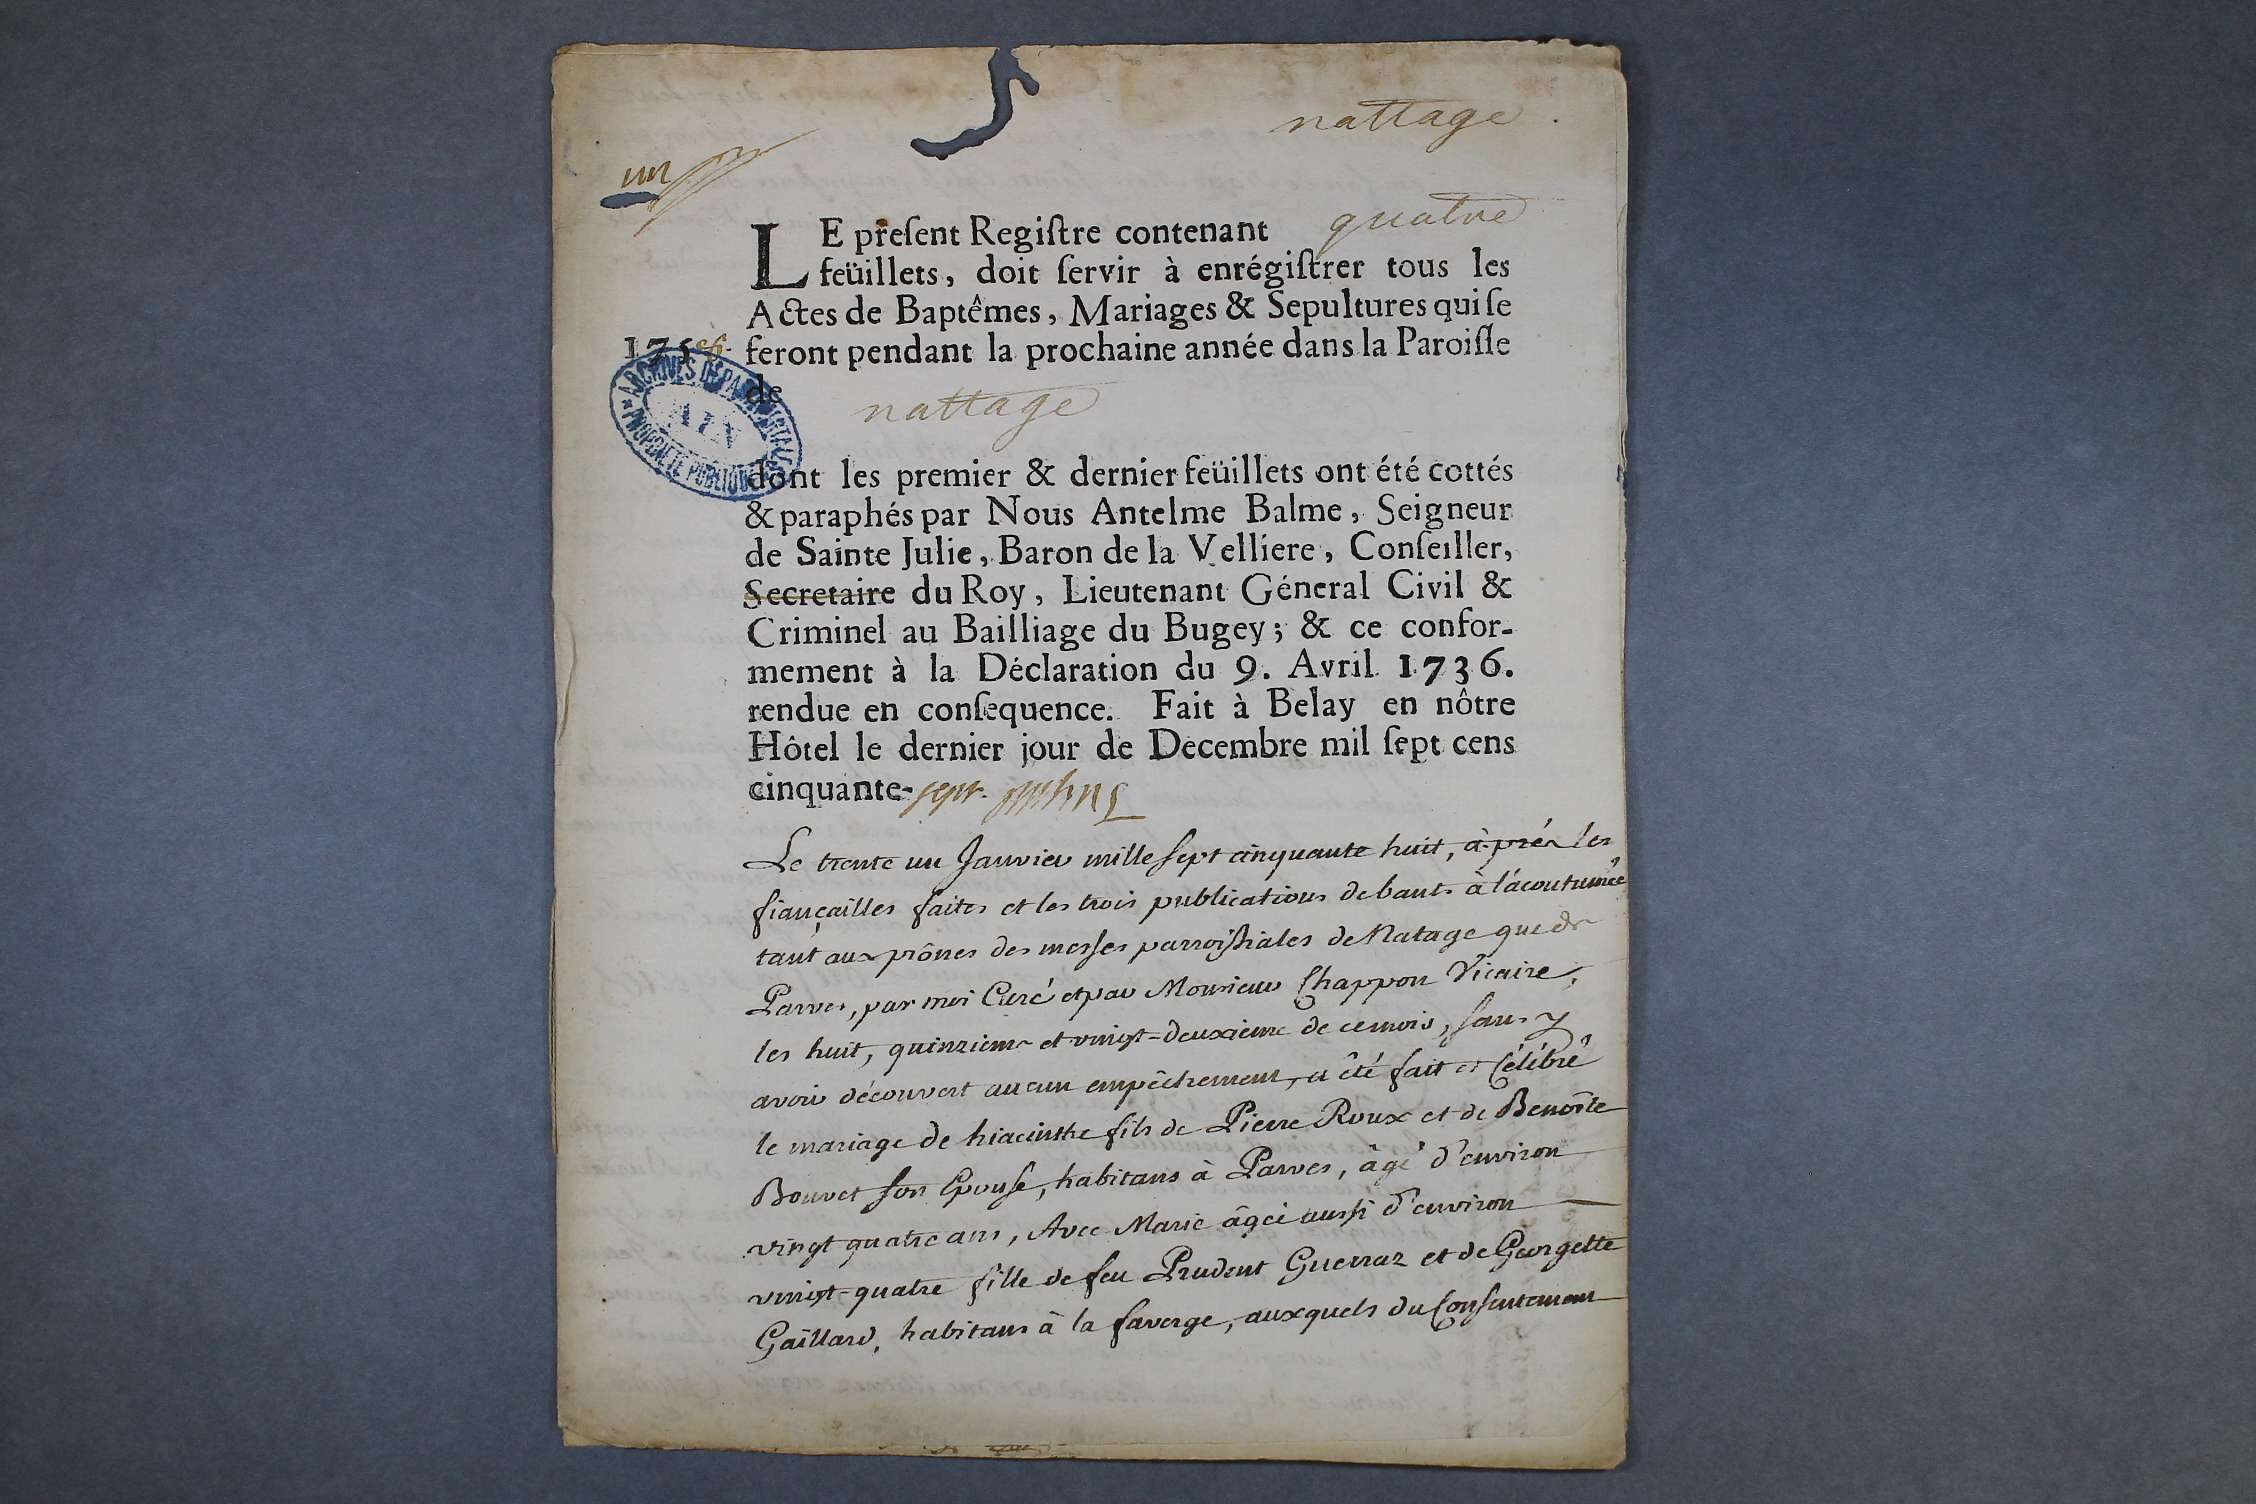 nattage
un
LE preſent Regiſtre contenant quatre
feüillets, doit ſervir à enrégiſtrer tous les
Actes de Baptêmes, Mariages & Sepultures qui ſe
1758. feront pendant la prochaine année dans la Paroiſſe
de
nattage
ARCHIVES DÉPARTEMENTALES
AIN
PROPRIÉTÉ PUBLIQUE
dont les premier & dernier feüillets ont été cottés
& paraphés par Nous Antelme Balme, Seigneur
de Sainte Julie, Baron de la Velliere, Conſeiller,
Secretaire du Roy, Lieutenant Géneral Civil &
Criminel au Bailliage du Bugey; & ce confor-
mement à la Déclaration du 9. Avril 1736.
rendue en conſequence. Fait à Belay en nôtre
Hôtel le dernier jour de Decembre mil ſept cens
cinquante-sept.
Le trente un Janvier mille sept cinquante huit, à prés les
fiançailles faites et les trois publications de bants à l'acoutumée
tant aux prônes des messes parroissiales de Natage que de
Parves, par moi Curé et par Monsieur Chappon Vicaire,
les huit, quinzieme et vingt-deuxieme de ce mois, sans y
avoir découvert aucun empêchement, a été fait et Célébré
le mariage de hiacinthe fils de Pierre Roux et de Benoîte
Bouvet son Epouse, habitans à Parves, âgé d'environ
vingt quatre ans, Avec Marie âgée aussi d'environ
vingt-quatre fille de feu Prudent Guerraz et de Georgette
Gaillard, habitans à la faverge, auxquels du Consentement